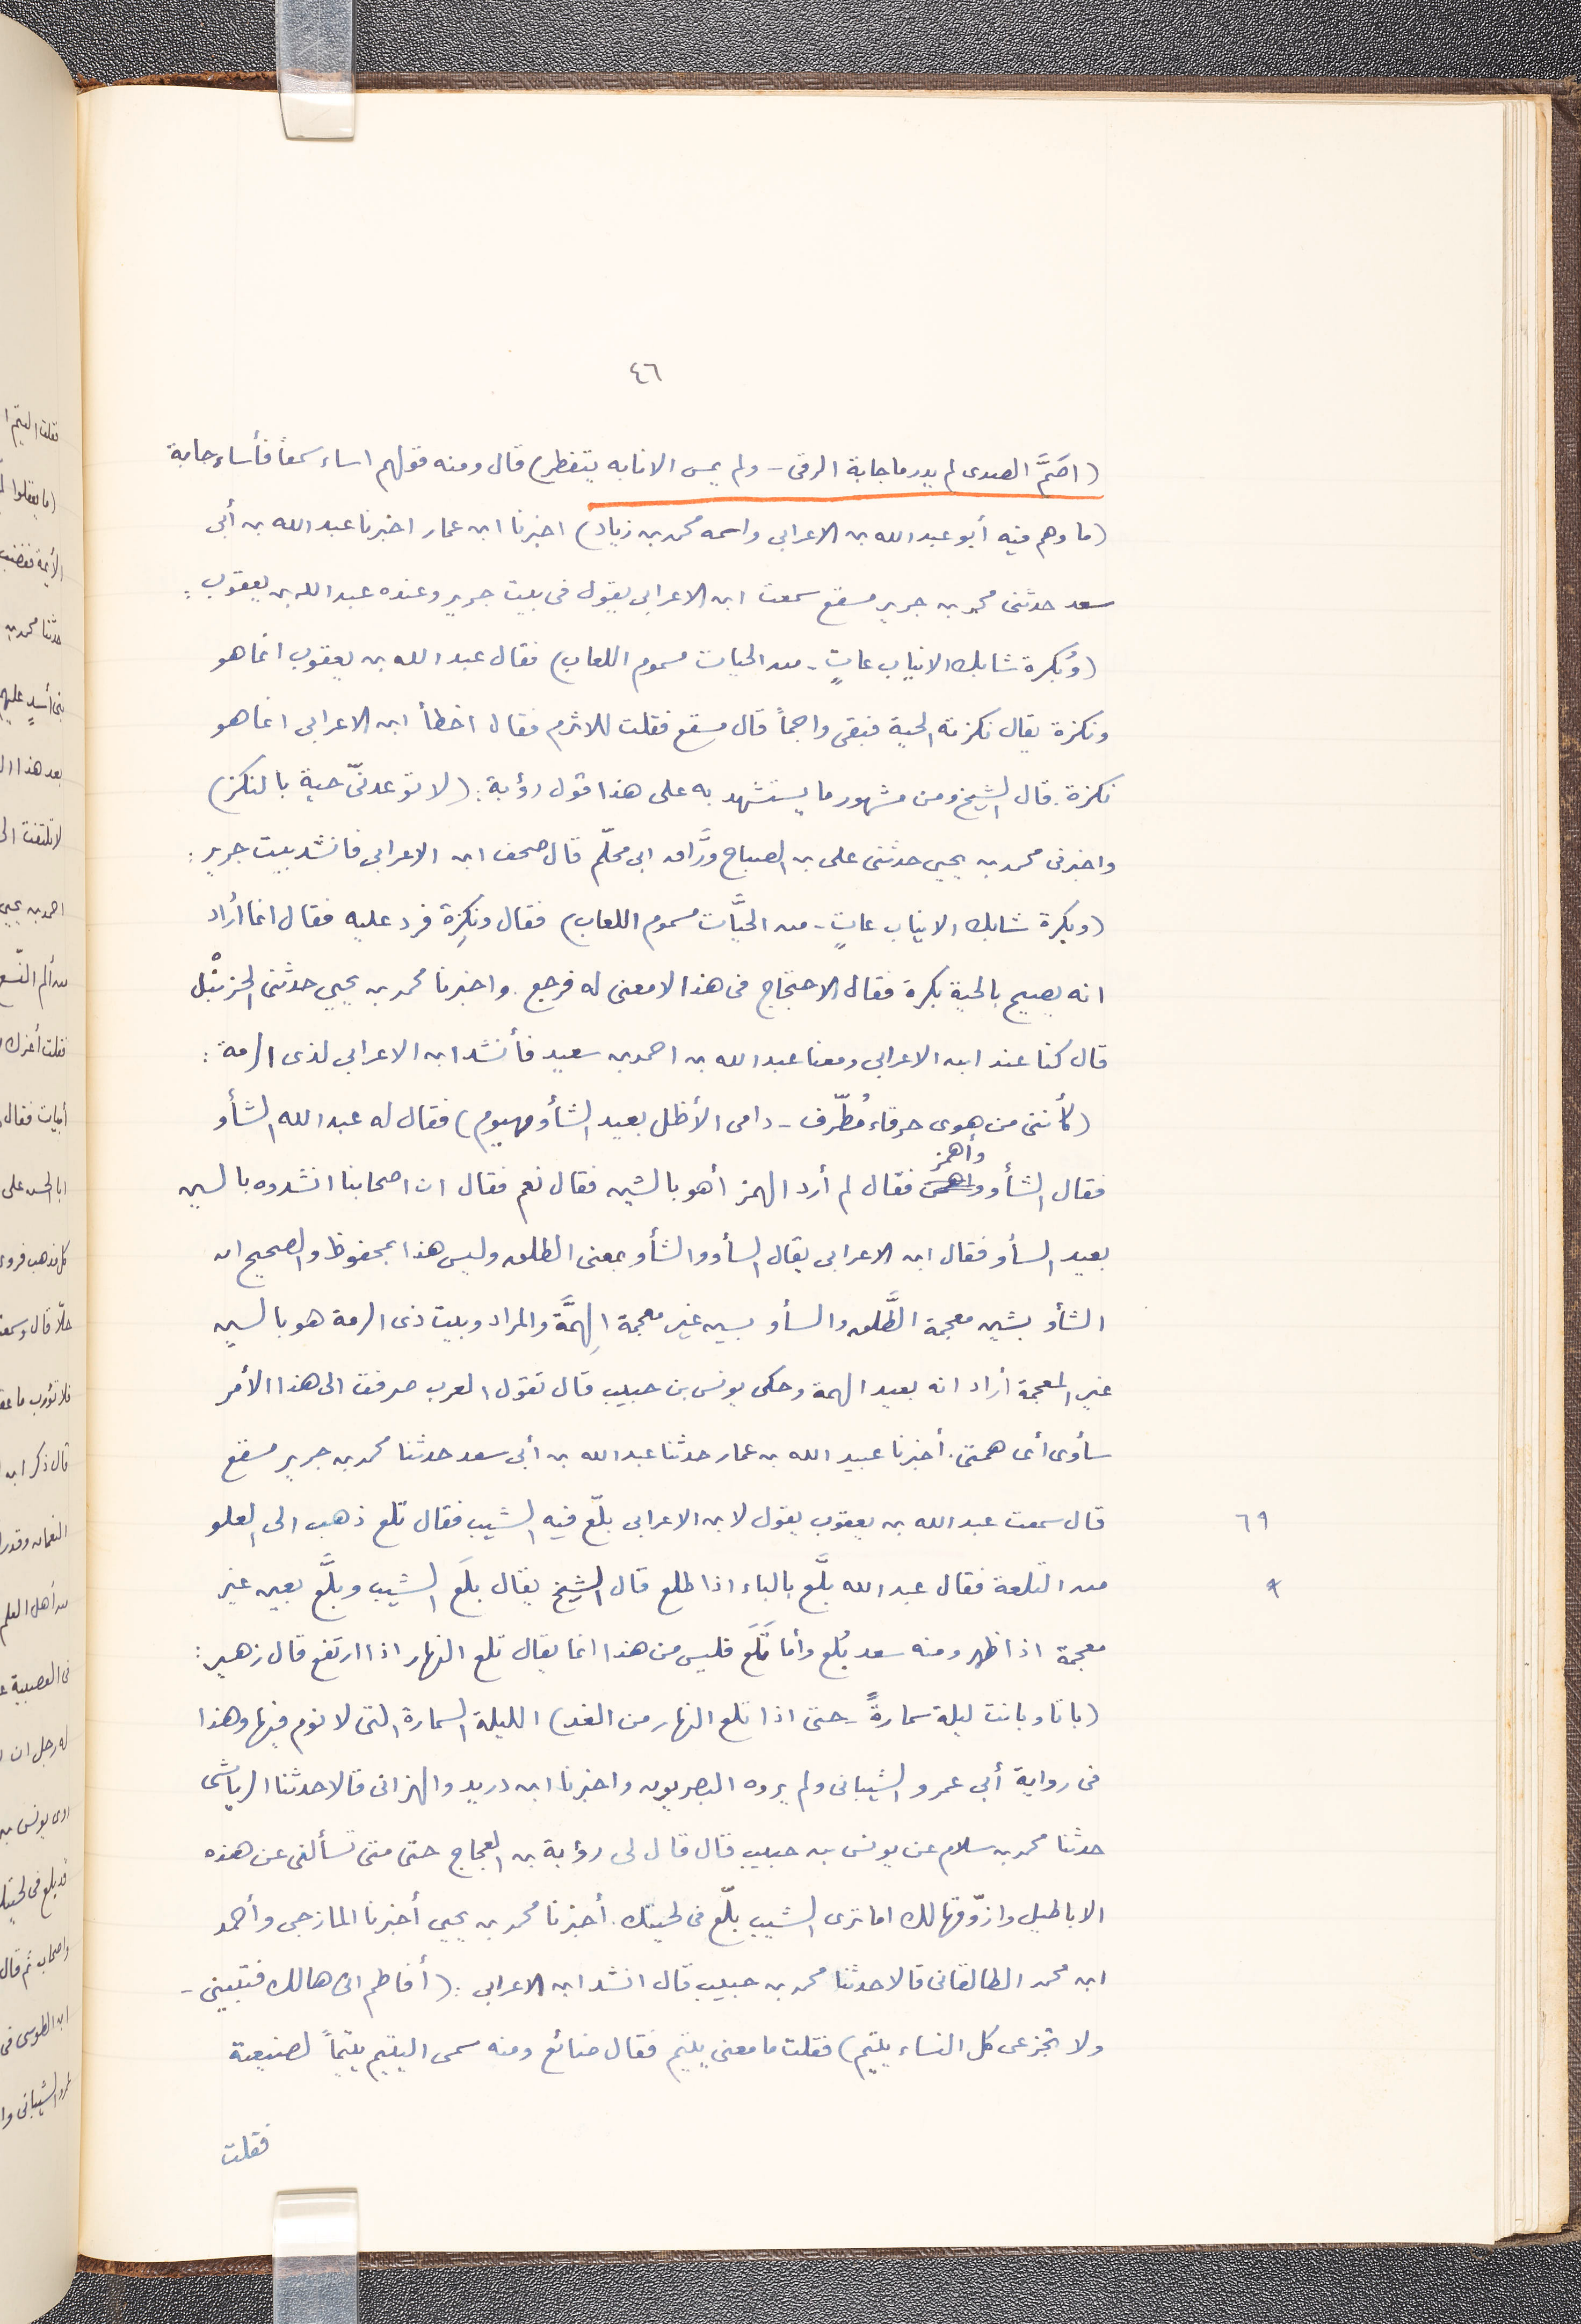 ٤٦
(اصَمَّ الصدى لم يدر ما جابة الرقى - ولم يمس الا نابه يتفطر) قال ومنه قولهم اساء سمعاً فأساء جابة
(ما وهم فيه أبو عبد الله بن الاعرابي واسمه محمد بن زياد) اخبرنا ابن عمار اخبرنا عبد الله بن أبى
سعد حدثنى محمد بن جرير مسقع سمعت ابن الاعرابى يقول فى بيت جرير وعنده عبد الله بن يعقوب :
(وُبكرة شابك الانياب عاتٍ - من الحيات مسموم اللعاب) فقال عبد الله بن يعقوب انما هو
ونكزة يقال نكزته الحية فبقى واجماً قال مسقع فقلت للاثرم فقال اخطأ ابن الاعرابى انما هو
نكزة . قال الشيخ ومن مشهور ما يستشهد به على هذا قول رؤبة : (لا توعدنّى حية بالنكز)
واخبرنى محمد بن يحيى حدثنى على بن الصباح ورَّاق ابى محلّم قال صحف ابن الاعرابى فانشد بيت جرير :
(وبكرة شابك الانياب عاتٍ - من الحيَّات مسموم اللعاب) فقال ونكِزة فرد عليه فقال انما أراد
انه يصيح بالحية بكرة فقال الاحتجاج فى هذا لا معنى له فرجع . واخبرنا محمد بن يحيى حدثنى الحزنْبل
قال كنا عند ابن الاعرابى ومعنا عبد الله بن احمد بن سعيد فأنشد ابن الاعرابى لذى الرمة :
(كأننى من هوى خرقاء مُطّرف - دامى الأظل بعيد الشأو مهيوم) فقال له عبد الله الشأو
وأهمز
فقال الشأو فقال لم أرد الهمز أهو بالشين فقال نعم فقال ان اصحابنا انشدوه بالسين
بعيد السأو فقال ابن الاعرابى يقال السأو والشأو بمعنى الطلق وليس هذا بمحفوظ والصحيح ان
الشأو بشين معجمة الطَّلق والسأو بسين غير معجمة الهِمَّة والمراد وبيت ذى الرمة هو بالسين
غير المعجمة أراد انه بعيد الهمة وحكى يونس بن حبيب قال تقول العرب صرفت الى هذا الأمر
سأوى أى همتى . أخبرنا عبيد الله بن عمار حدثنا عبد الله بن أبى سعد حدثنا محمد بن جرير مسقع
قال سمعت عبد الله بن يعقوب يقول لابن الاعرابى بلّع فيه الشيب فقال تلع ذهب الى العلو
٦٩
من التلعة فقال عبد الله بلَّع بالباء اذا طلع قال الشيخ يقال بلَع الشيب وبلَّع بعين غير
٩
معجمة اذا ظهر ومنه سعد بُلَع وأما تَلَع فليس من هذا انما يقال تلع النهار اذا ارتفع قال زهير :
(باتا وباتت ليلة سمارةً - حتى اذا تلع النهار من الغد) الليلة السمارة التى لا نوم فيها وهذا
فى رواية أبى عمرو الشيبانى ولم يروه البصريون واخبرنا ابن دريد والهزانى قالا حدثنا الرياشى
حدثنا محمد بن سلام عن يونس بن حبيب قال قال لى رؤبة بن العجاج حتى متى تسألنى عن هذه
الاباطيل وازوّقها لك اما ترى الشيب بلّع فى لحيتك . أخبرنا محمد بن يحيى أخبرنا المازجى وأحمد
ابن محمد الطالقانى قالا حدثنا محمد بن حبيب قال انشد ابن الاعرابى : (أفاطم انى هالك فتبينى -
ولا تجزعى كل النساء يتيم) فقلت ما معنى يتيم فقال ضائع ومنه سمى اليتيم يتيماً لضيعته
فقلت